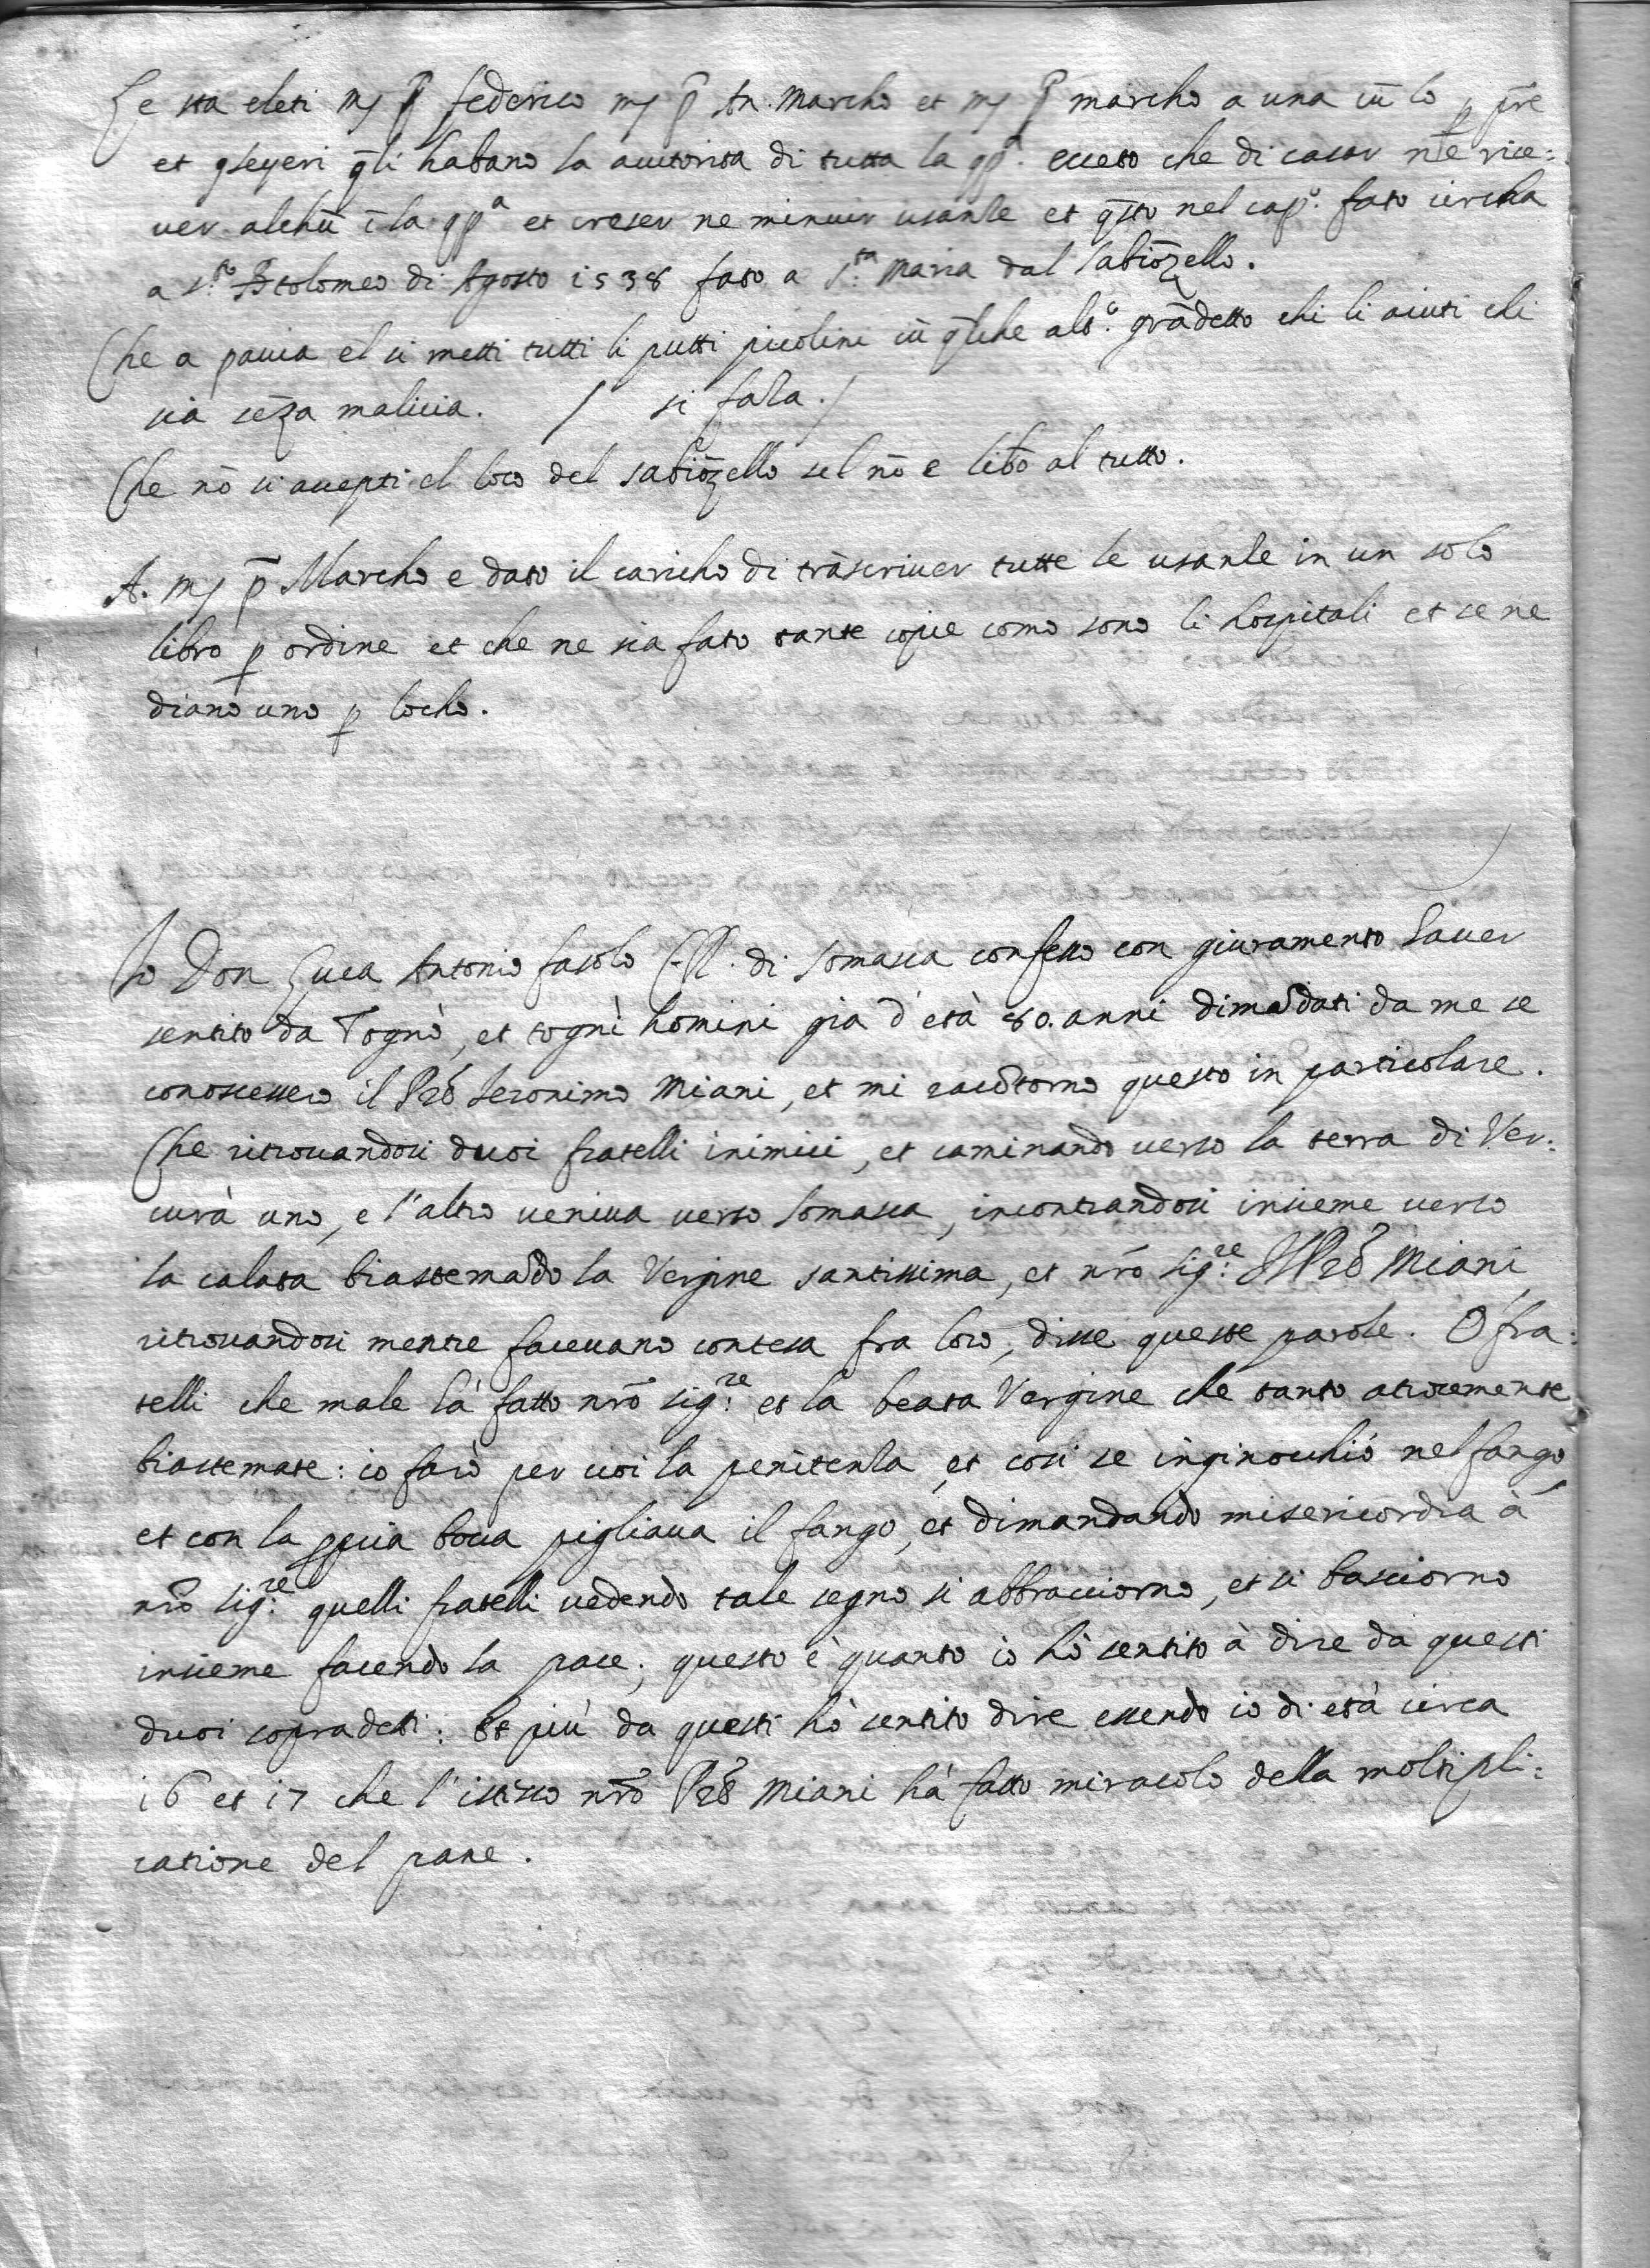 Le sta eleti mʃ p̄ federico mʃ p̄ An. Marcho et mʃ p̄ marcho a una cū lo p pr̄e
et q̄li habano la auttorita di tutta la qp.ª eceto che di casar nē rice=
uer alchū ī la qpª et creser ne minuir usanze et q̄sto nel cap.º fato circha
a s.to Btolomeo di Agosto 1538 fato a S.ta Maria dal Sabiōzello.
Che a pauia el si metti tutti li putti picolini cū q̄lche alt.º grādetto chi li aiuti chi
sia sēza malicia. / si faza./
Che nō si accepti el loco del sabiōzello sel nō e lib̄o al tutto.
A. mʃ p̄ Marcho e dato il caricho di trāscriuer tutte le usanze in un solo
libro p ordine et che ne sia fato tante copie como sono li hospitali et se ne
diano uno p locho.
Io Don Luca Antonio fasolo C.R. di Somasca confesso con giuramento hauer
sentito da Togno, et togni homini già d'età 80. anni dimādati da me se
conoscessero il Prē Ieronimo Miani, et mi racōtorno questo in particolare.
Che ritrouandosi duoi fratelli inimici, et caminando uerso la terra di Ver=
curà uno, e l'altro ueniua uerso Somasca, incontrandosi insieme uerso
la calata biastemādo la Vergine santissima, et nrō Sig:re Il Prē Miani
ritrouandosi mentre faceuano contesa fra loro, disse queste parole. O fra=
telli che male hà fatto nrō Sig:re et la beata Vergine che tanto atrocemente
biastemate: io farò per uoi la penitenza, et cosi se inginocchiò nel fango,
et con la ppria bocca pigliaua il fango, et dimandando misericordia à
nrō Sig:re quelli fratelli uedendo tale segno si abbracciorno, et si basciorno
insieme facendo la pace; questo è quanto io hò sentito à dire da questi
duoi sopradetti: Et più da questi hò sentito dire essendo io di età circa
16 et 17 che l'istesso nrō Prē Miani hà fatto miracolo della moltipli=
catione del pane.